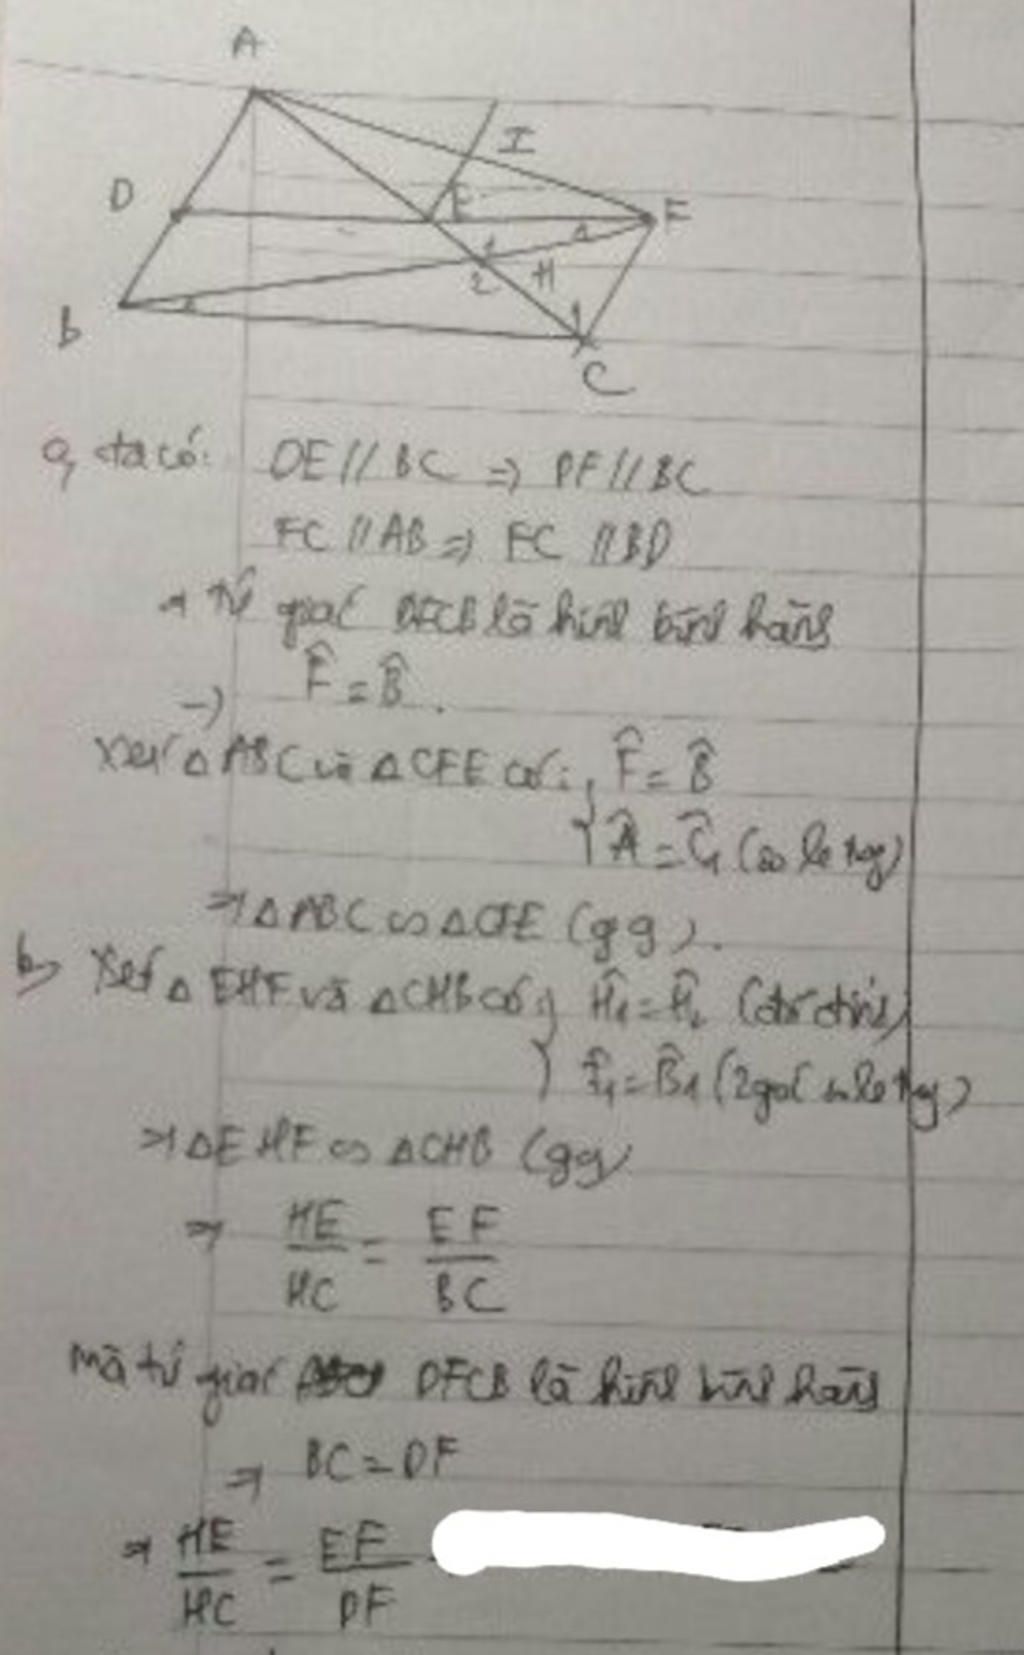 A
I
D
E
F
1
1
2
H
1
B
C
a, ta có: DE // BC => DF // BC
FC // AB => FC // BD
=> Tứ giác DFCB là hình bình hành
=> F̂ = B̂.
Xét △ ABC và △ CFE có: F̂ = B̂
Â = Ĉ₁ (so le trog)
=> △ ABC ∽ △ CFE (gg).
b, Xét △ EHF và △ CHB có: Ĥ₁ = Ĥ₂ (đối đỉnh)
F̂₁ = B̂₁ (2 góc so le trog)
=> △ EHF ∽ △ CHB (gg)
=> HE/HC = EF/BC
mà tứ giác DFCB là hình bình hành
=> BC = DF
=> HE/HC = EF/DF